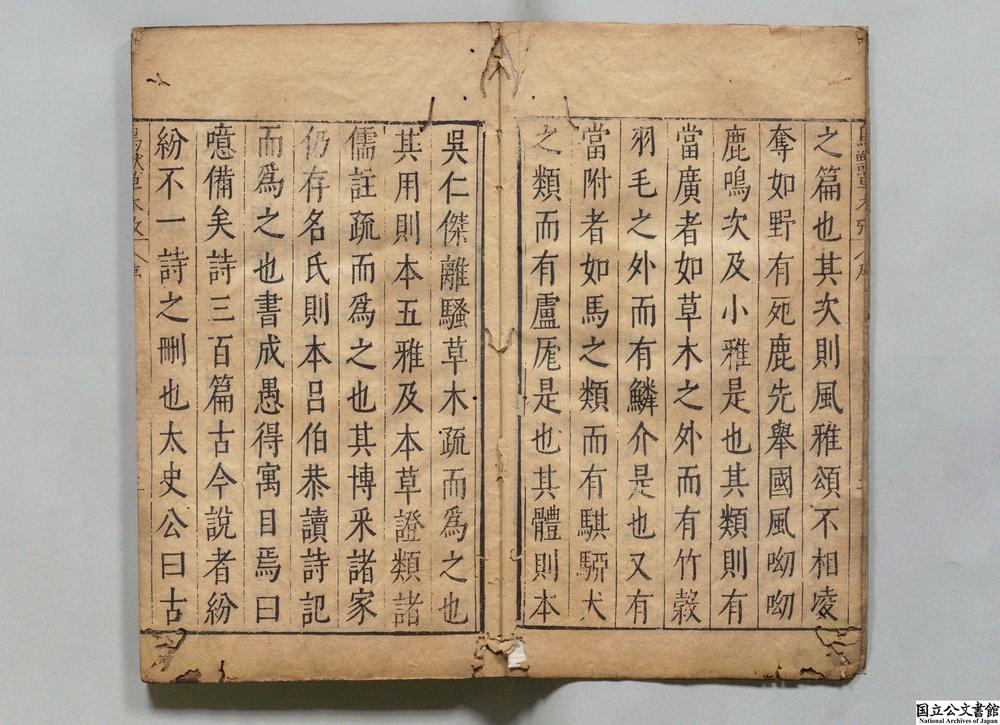 之篇也其次則風雅頌不相凌
奪如野有死鹿先舉國風呦呦
鹿鳴次及小雅是也其類則有
當廣者如草木之外而有竹榖
羽毛之外而有鱗介是也又有
當附者如馬之類而有騏驔犬
之類而有盧尨是也其體則本
吳仁傑離騷草木疏而爲之也
其用則本五雅及本草證類諸
儒註疏而爲之也其博釆諸家
仍存名氏則本呂伯恭讀詩記
而爲之也書成愚得寓目焉曰
噫備矣詩三百篇古今說者紛
紛不一詩之刪也太史公曰古
国立公文書館
National Archives of Japan